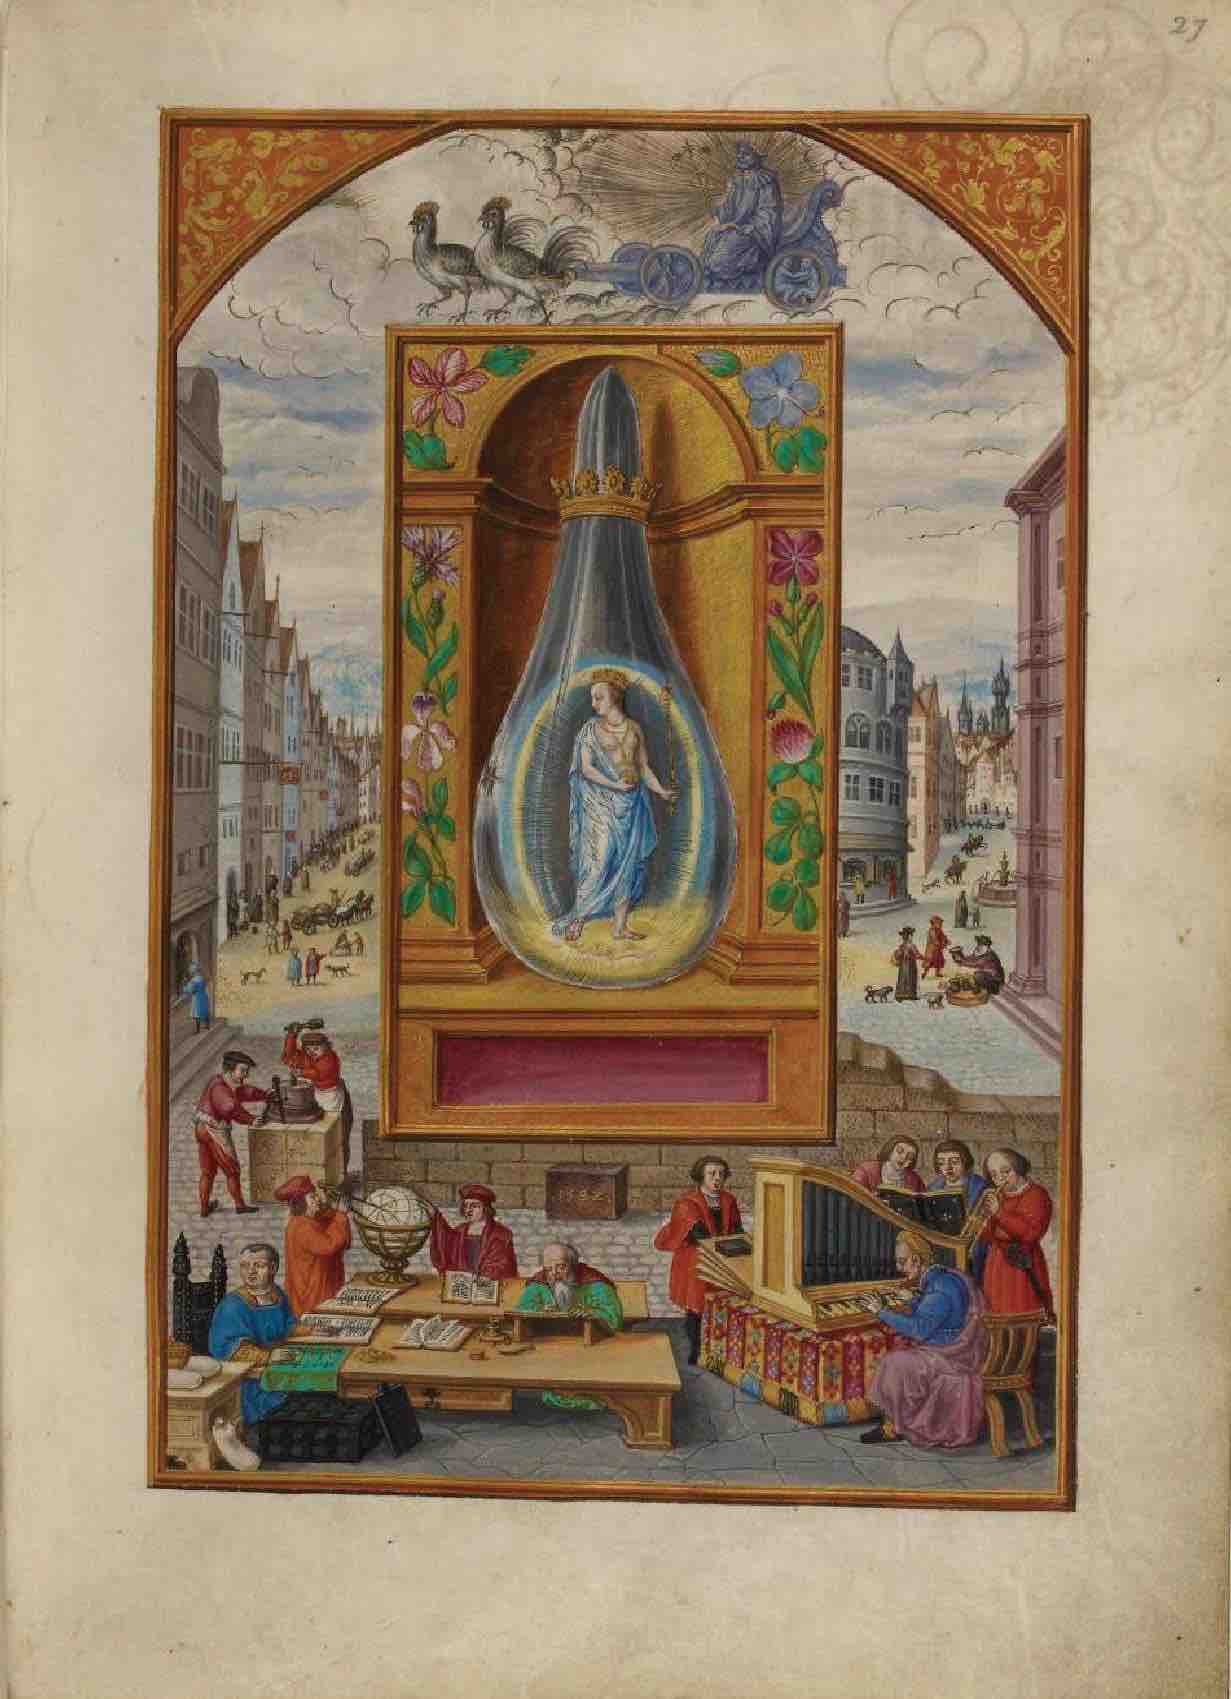 27
1582